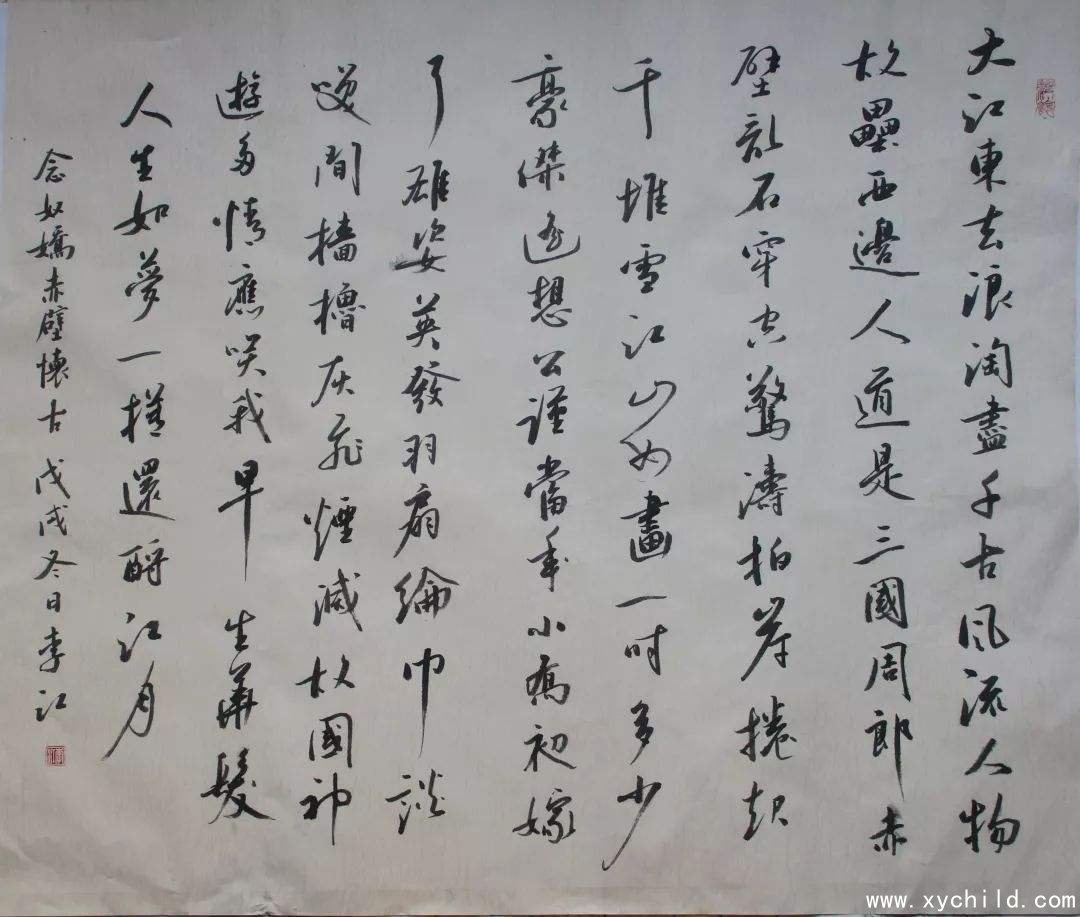 大江東去浪淘盡千古風流人物
故壘西邊人道是三國周郎赤
壁乱石穿空驚濤拍岸捲起
千堆雪江山如畫一時多少
豪傑遙想公謹當年小喬初嫁
了雄姿英發羽扇綸巾談
咲間檣櫓灰飛煙滅故國神
遊多情應咲我早生華髮
人生如夢一樽還酹江月
念奴嬌赤壁懷古 戊戌冬日李江
www.xychild.com